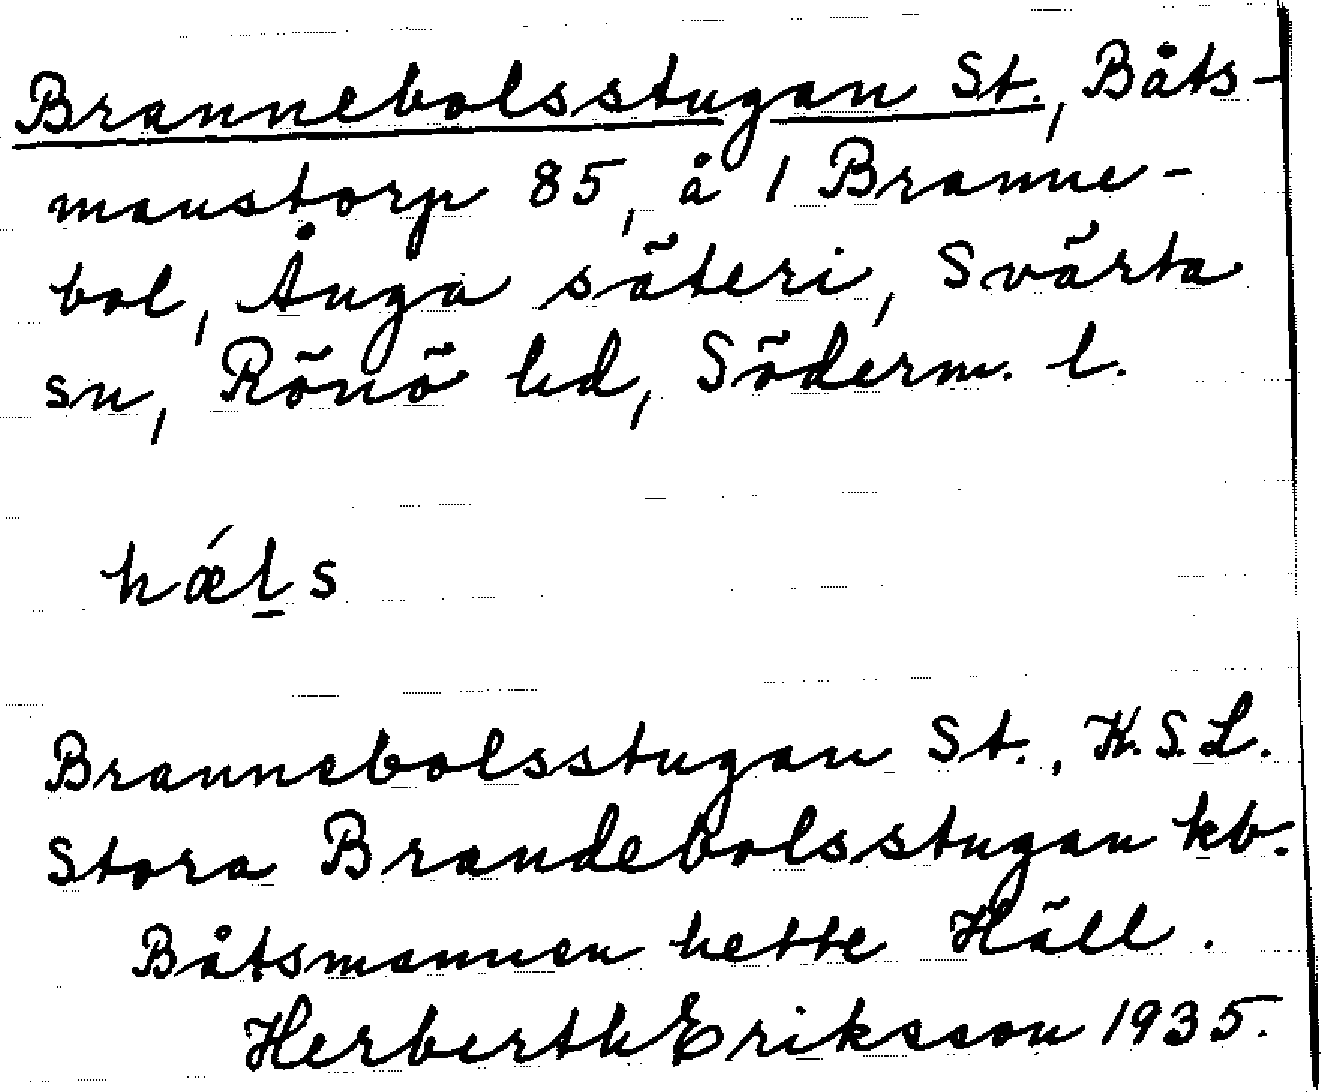 Brannebolsstugan St., Båts-
manstorp 85, å 1 Branne-
bol, Ånga säteri, Svärta
sn, Rönö hd, Söderm. l.
hǽl̲s
Brannebolsstugan St., K.S.L.
Stora Brandebolsstugan kb.
Båtsmannen hette Häll.
Herberth Eriksson 1935.